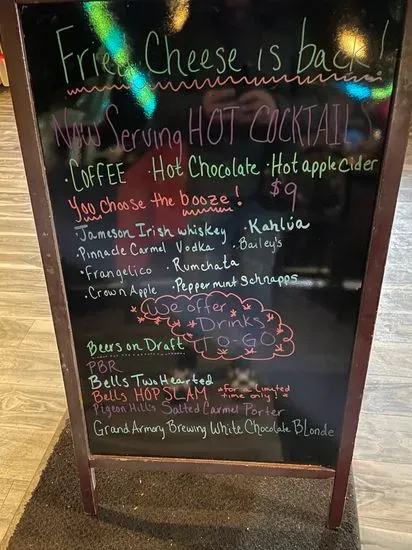 Fried Cheese is back!
Now Serving HOT COCKTAILS
·COFFEE ·Hot Chocolate ·Hot apple cider
You choose the booze! $9
·Jameson Irish whiskey ·Kahlúa
·Pinnacle Carmel Vodka ·Bailey's
·Frangelico ·Rumchata
·Crown Apple ·Peppermint Schnapps
We offer
Drinks
TO-GO
Beers on Draft
PBR
Bells Two Hearted
Bells HOPSLAM *for a limited time only!*
Pigeon Hill's Salted Carmel Porter
Grand Armory Brewing White Chocolate Blonde